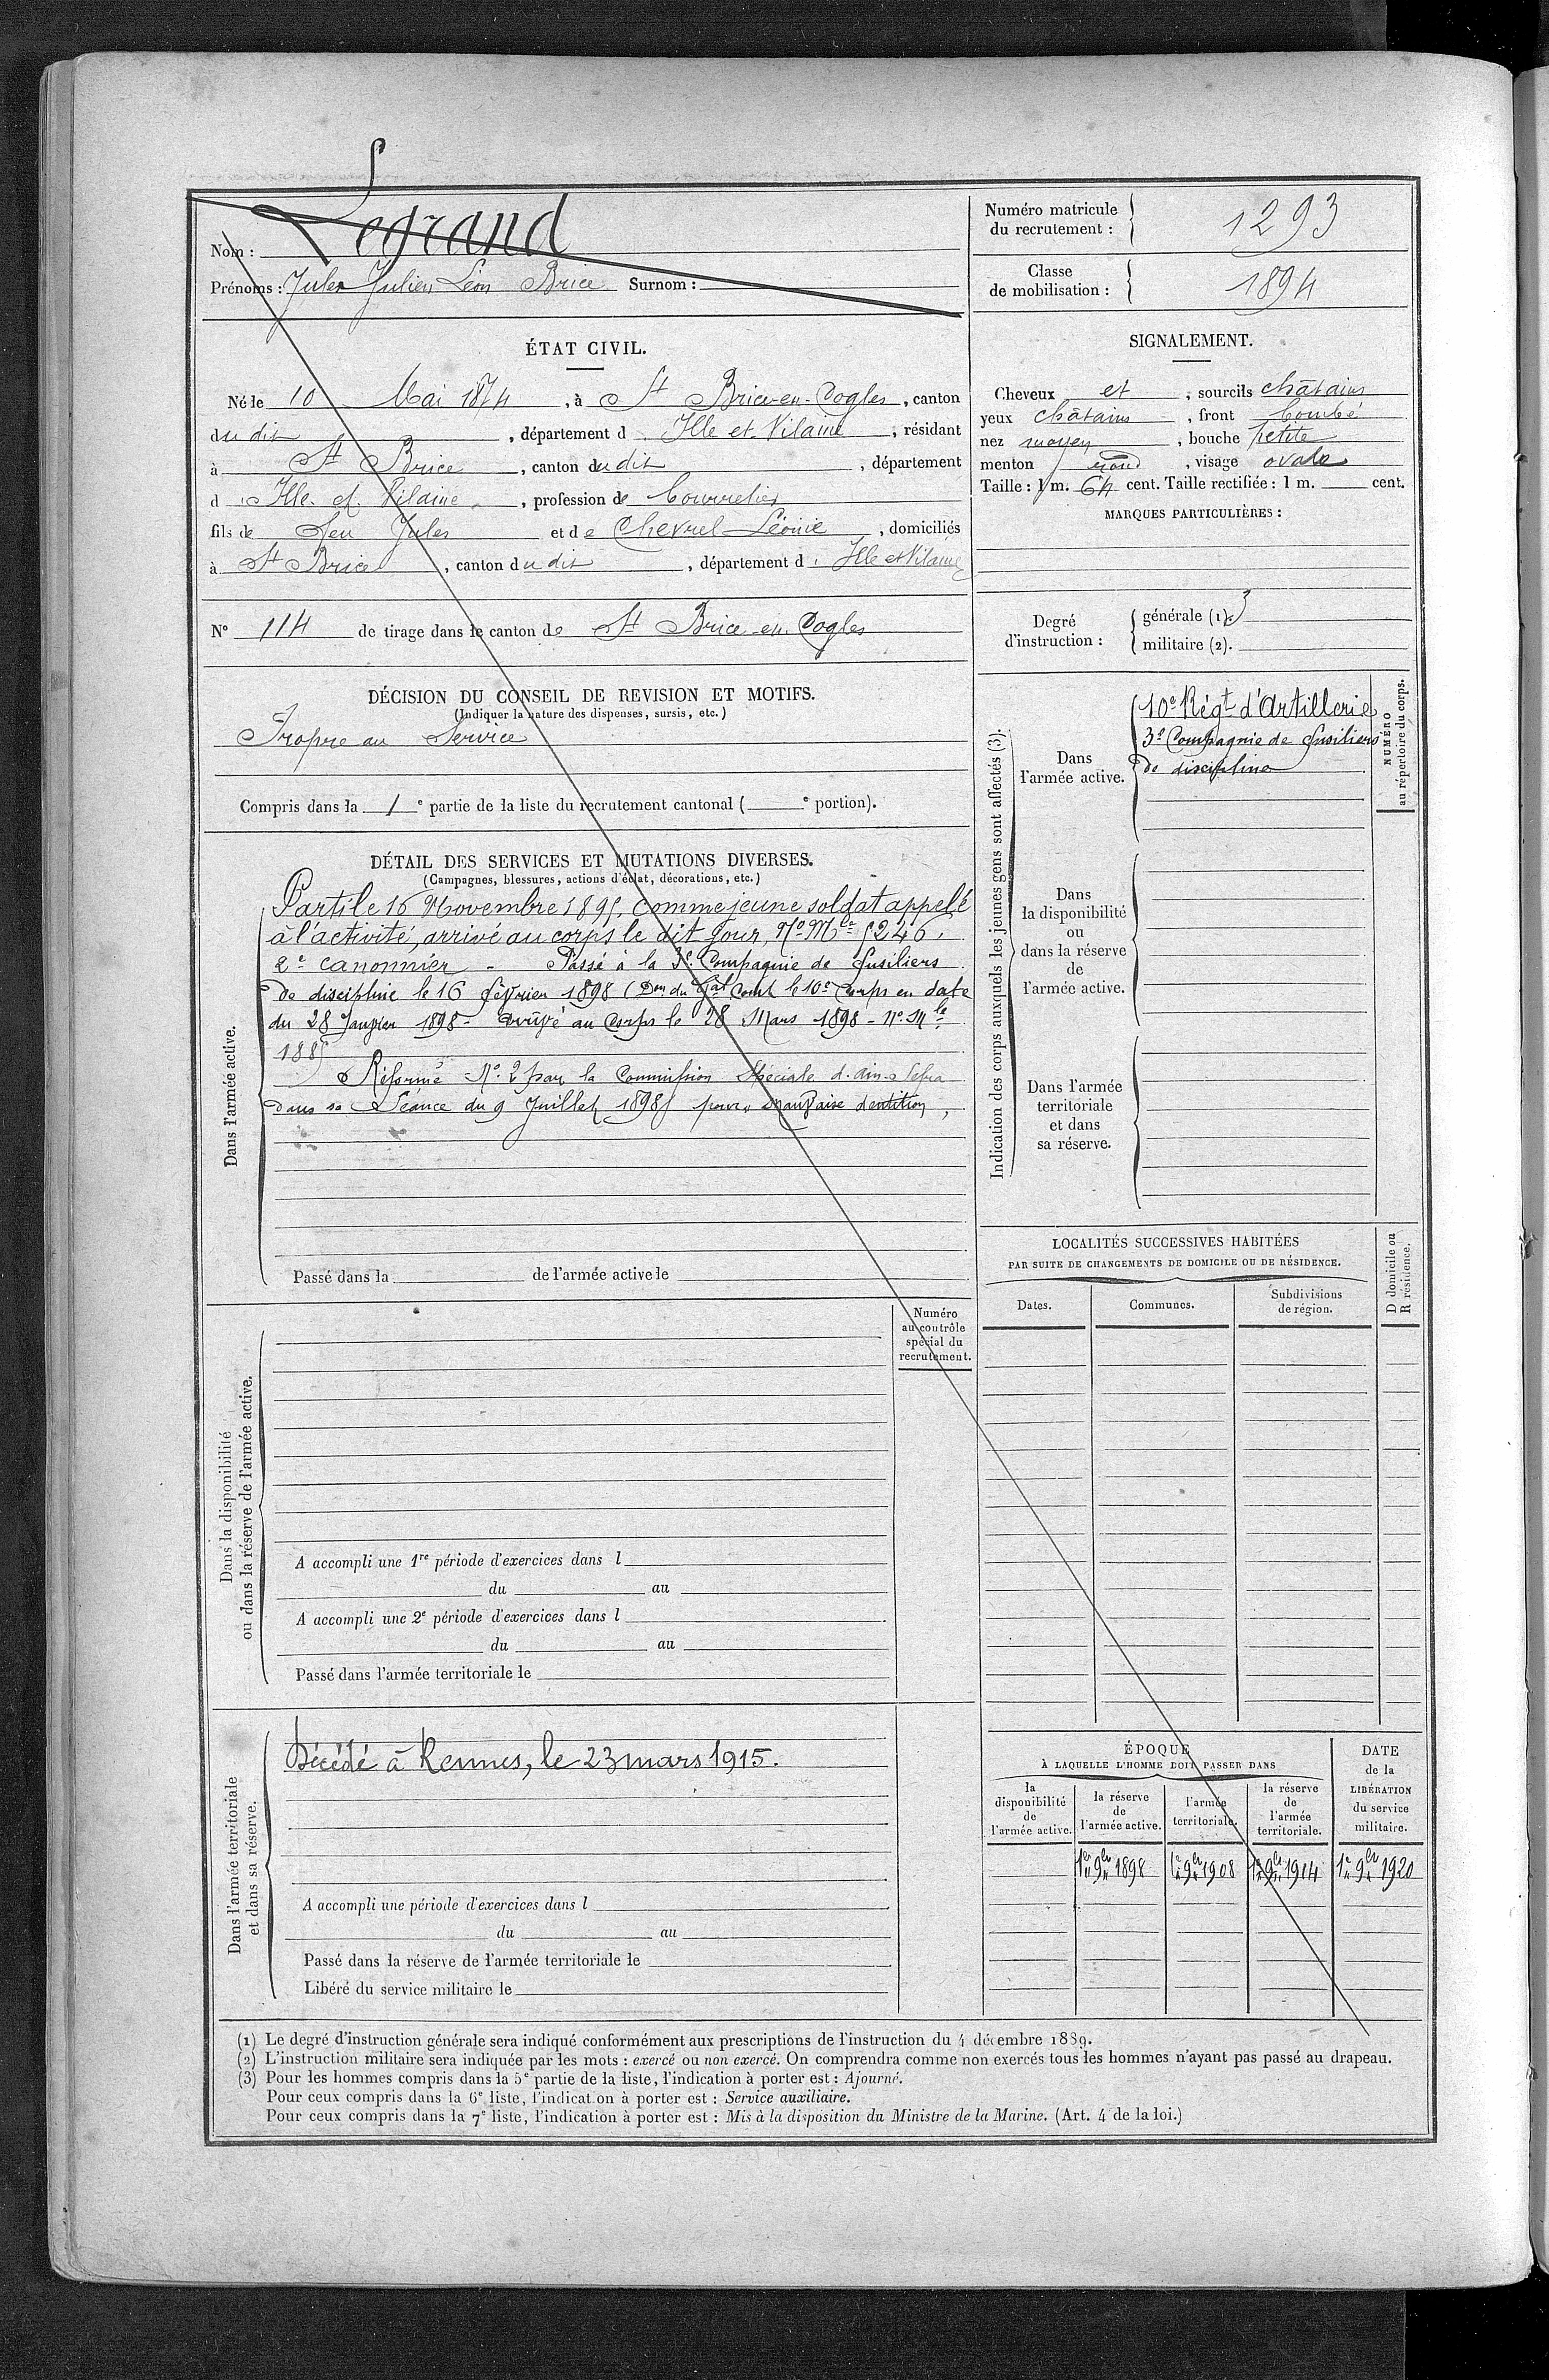 Nom : Legrand
Prénoms : Jules Julien Léon Brice Surnom :
Numéro matricule du recrutement : 1293
Classe de mobilisation : 1894
ÉTAT CIVIL.
Né le 10 Mai 1874, à St Brice-en-Cogles, canton
du dit, département d. Ille et Vilaine, résidant
à St Brice, canton du dit, département
d. Ille et Vilaine, profession de Bourrelier
fils de feu Jules et de Chevrel Léonie, domiciliés
à St Brice, canton du dit, département d. Ille et Vilaine
N° 114 de tirage dans le canton de St Brice-en-Cogles
DÉCISION DU CONSEIL DE REVISION ET MOTIFS.
(Indiquer la nature des dispenses, sursis, etc.)
Propre au Service
Compris dans la 1e partie de la liste du recrutement cantonal ( e portion).
SIGNALEMENT.
Cheveux et, sourcils châtains
yeux châtains, front bombé
nez moyen, bouche petite
menton rond, visage ovale
Taille : 1 m. 64 cent. Taille rectifiée : 1 m. cent.
MARQUES PARTICULIÈRES :
Degré d'instruction :
générale (1). 3
militaire (2).
DÉTAIL DES SERVICES ET MUTATIONS DIVERSES.
(Campagnes, blessures, actions d'éclat, décorations, etc.)
Dans l'armée active.
Parti le 16 Novembre 1895, comme jeune soldat appelé
à l'activité, arrivé au corps le dit jour, No Mle 5246.
2e canonnier - Passé à la 3e Compagnie de fusiliers
de discipline le 16 février 1898 (Don du Gal Comt le 10e Corps en date
du 28 Janvier 1898 - arrivé au Corps le 28 Mars 1898 - No Mle
1885
Réformé No 2 par la Commission Spéciale d'ain Sefra
dans sa Séance du 9 Juillet 1898 pour mauvaise dentition,
Passé dans la de l'armée active le
Indication des corps auxquels les jeunes gens sont affectés (3).
Dans l'armée active.
10e Régt d'Artillerie
3e Compagnie de fusiliers
de discipline
NUMÉRO au répertoire du corps.
Dans la disponibilité ou dans la réserve de l'armée active.
Dans l'armée territoriale et dans sa réserve.
LOCALITÉS SUCCESSIVES HABITÉES
PAR SUITE DE CHANGEMENTS DE DOMICILE OU DE RÉSIDENCE.
Dates. Communes. Subdivisions de région.
D domicile ou R résidence.
Numéro au contrôle spécial du recrutement.
Dans la disponibilité ou dans la réserve de l'armée active.
A accompli une 1re période d'exercices dans l
du au
A accompli une 2e période d'exercices dans l
du au
Passé dans l'armée territoriale le
Dans l'armée territoriale et dans sa réserve.
Décédé à Rennes, le 23 mars 1915.
A accompli une période d'exercices dans l
du au
Passé dans la réserve de l'armée territoriale le
Libéré du service militaire le
ÉPOQUE
À LAQUELLE L'HOMME DOIT PASSER DANS
la disponibilité de l'armée active.
la réserve de l'armée active.
l'armée territoriale.
la réserve de l'armée territoriale.
DATE de la LIBÉRATION du service militaire.
1er 9bre 1898 1er 9bre 1908 1er 9bre 1914 1er 9bre 1920
(1) Le degré d'instruction générale sera indiqué conformément aux prescriptions de l'instruction du 4 décembre 1889.
(2) L'instruction militaire sera indiquée par les mots : exercé ou non exercé. On comprendra comme non exercés tous les hommes n'ayant pas passé au drapeau.
(3) Pour les hommes compris dans la 5e partie de la liste, l'indication à porter est : Ajourné.
Pour ceux compris dans la 6e liste, l'indication à porter est : Service auxiliaire.
Pour ceux compris dans la 7e liste, l'indication à porter est : Mis à la disposition du Ministre de la Marine. (Art. 4 de la loi.)